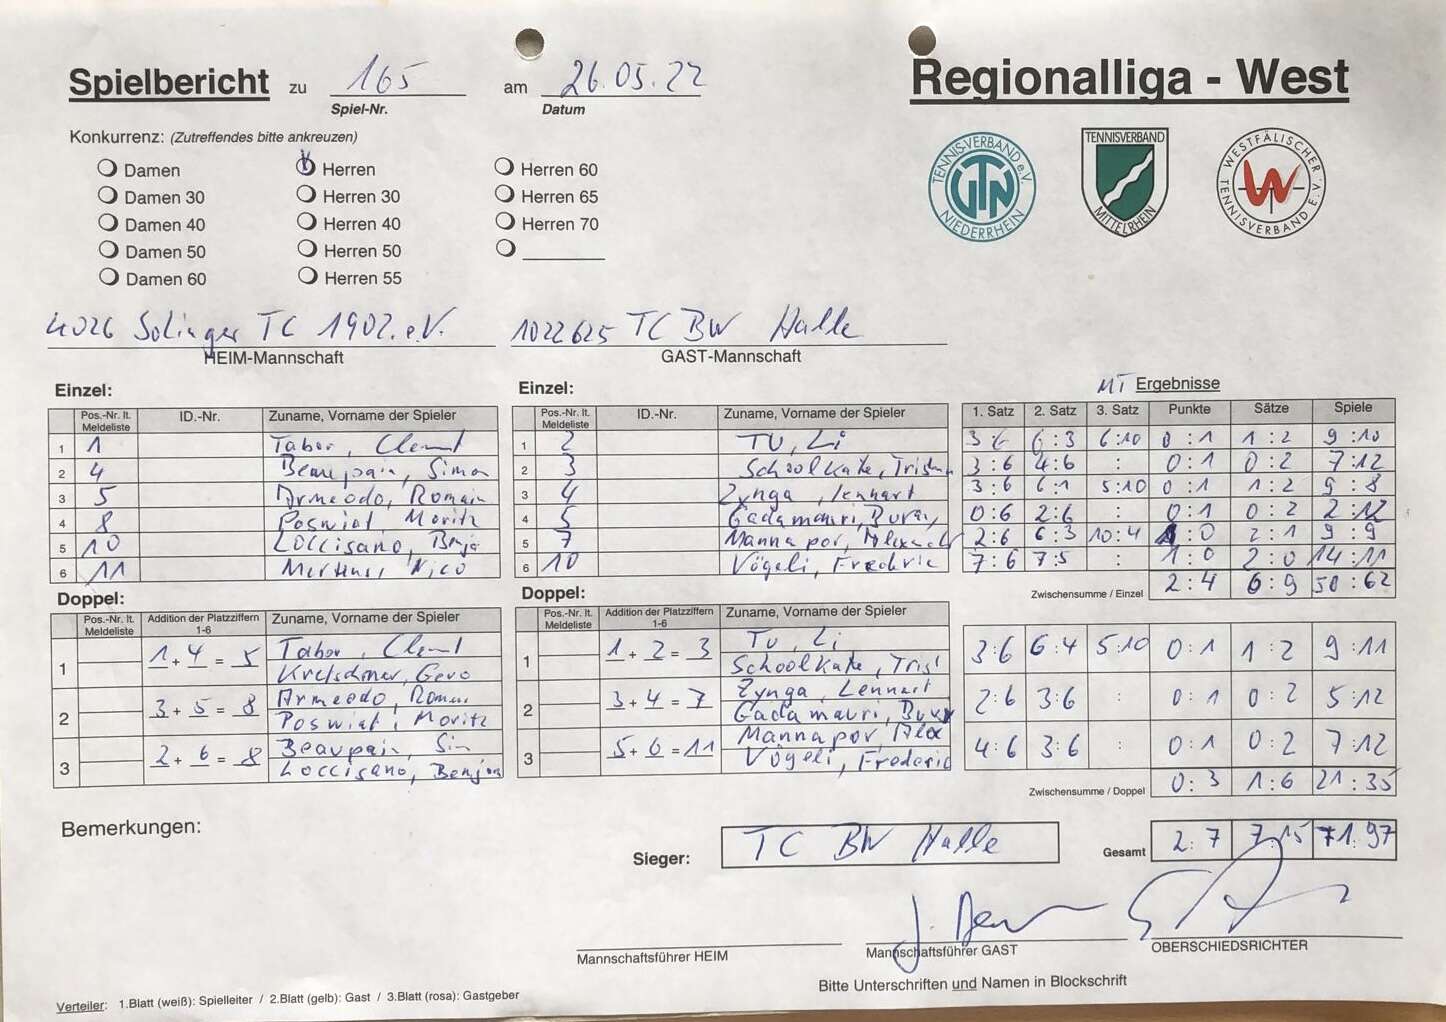 Spielbericht zu 165 am 26.05.22 Regionalliga - West
Spiel-Nr. Datum
Konkurrenz: (Zutreffendes bitte ankreuzen)
Damen Herren Herren 60
Damen 30 Herren 30 Herren 65
Damen 40 Herren 40 Herren 70
Damen 50 Herren 50
Damen 60 Herren 55
TENNIS-VERBAND e.V. NIEDERRHEIN TVN
TENNISVERBAND MITTELRHEIN
WESTFÄLISCHER TENNISVERBAND E.V.
4026 Solinger TC 1902 e.V. 1022625 TC BW Halle
HEIM-Mannschaft GAST-Mannschaft
MT Ergebnisse
Einzel: Einzel:
Pos.-Nr. lt. Meldeliste ID.-Nr. Zuname, Vorname der Spieler Pos.-Nr. lt. Meldeliste ID.-Nr. Zuname, Vorname der Spieler 1. Satz 2. Satz 3. Satz Punkte Sätze Spiele
1 1 Tabor, Clement 1 2 TU, Li 3 6 6:3 6:10 0:1 1:2 9:10
2 4 Beaupain, Simon 2 3 Schoolkate, Tristan 3:6 4:6 : 0:1 0:2 7:12
3 5 Armeodo, Romain 3 4 Zynga, Lennart 3:6 6:1 5:10 0:1 1:2 9:8
4 8 Poswiat, Moritz 4 5 Gadamauri, Buray 0:6 2:6 : 0:1 0:2 2:12
5 10 Loccisano, Benja 5 7 Mannapov, Alexandr 2:6 6:3 10:4 1:0 2:1 9:9
6 11 Mertens, Nico 6 10 Vögeli, Frederic 7:6 7:5 : 1:0 2:0 14:11
Zwischensumme / Einzel 2:4 6:9 50:62
Doppel: Doppel:
Pos.-Nr. lt. Meldeliste Addition der Platzziffern 1-6 Zuname, Vorname der Spieler Pos.-Nr. lt. Meldeliste Addition der Platzziffern 1-6 Zuname, Vorname der Spieler
1 1 + 4 = 5 Tabor, Clement 1 1 + 2 = 3 TU, Li 3:6 6:4 5:10 0:1 1:2 9:11
Kretschmer, Gero Schoolkate, Trist
2 3 + 5 = 8 Armeodo, Romain 2 3 + 4 = 7 Zynga, Lennart 2:6 3:6 : 0:1 0:2 5:12
Poswiat, Moritz Gadamauri, Buray
3 2 + 6 = 8 Beaupain, Sim 3 5 + 6 = 11 Mannapov, Alex 4:6 3:6 : 0:1 0:2 7:12
Loccisano, Benjam Vögeli, Frederic
Zwischensumme / Doppel 0:3 1:6 21:35
Bemerkungen:
Sieger: TC BW Halle Gesamt 2:7 7:15 71:97
Mannschaftsführer HEIM Mannschaftsführer GAST OBERSCHIEDSRICHTER
Bitte Unterschriften und Namen in Blockschrift
Verteiler: 1.Blatt (weiß): Spielleiter / 2.Blatt (gelb): Gast / 3.Blatt (rosa): Gastgeber